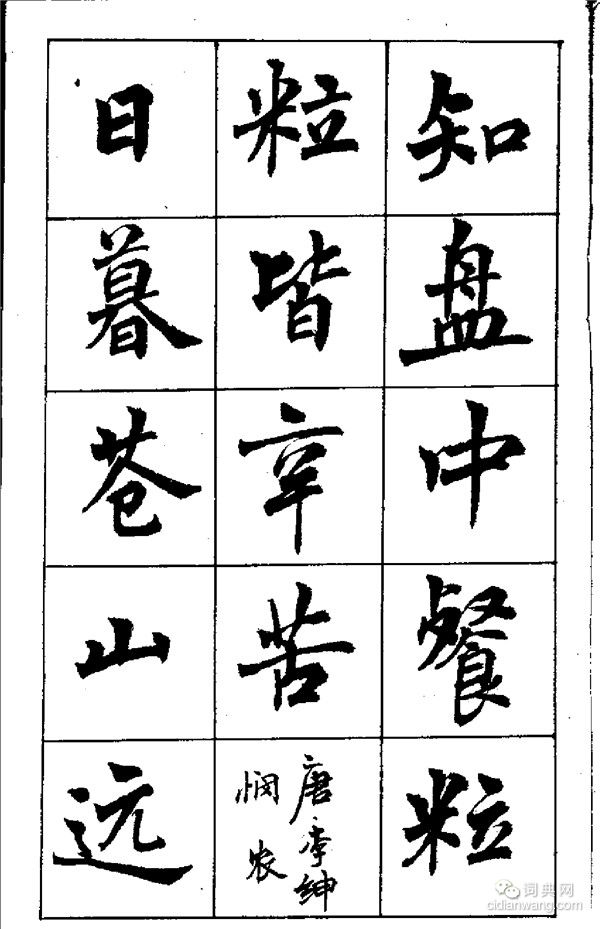 知盘中餐粒
粒皆辛苦
唐·李绅
悯农
日暮苍山远
词典网
cidianwang.com